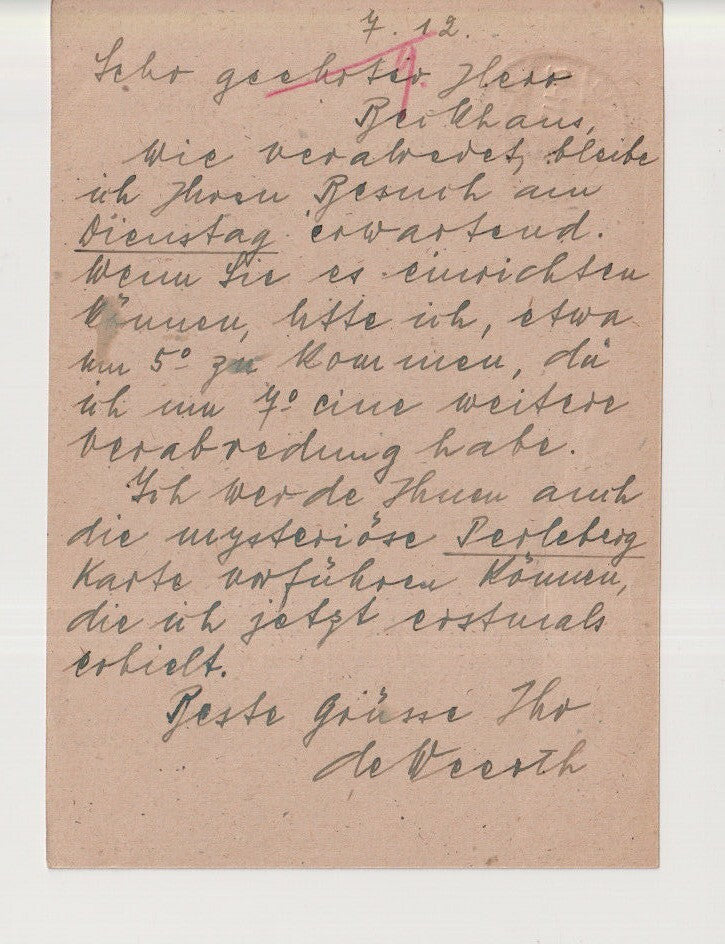 7. 12.
Sehr geehrter Herr
Beckhaus,
Wie verabredet, bleibe
ich Ihren Besuch am
Dienstag erwartend.
Wenn Sie es einrichten
können, bitte ich, etwa
um 5° zu kommen, da
ich um 7° eine weitere
Verabredung habe.
Ich werde Ihnen auch
die mysteriöse Perleberg
Karte vorführen können,
die ich jetzt erstmals
erhielt.
Beste Grüsse Ihr
de Weerth